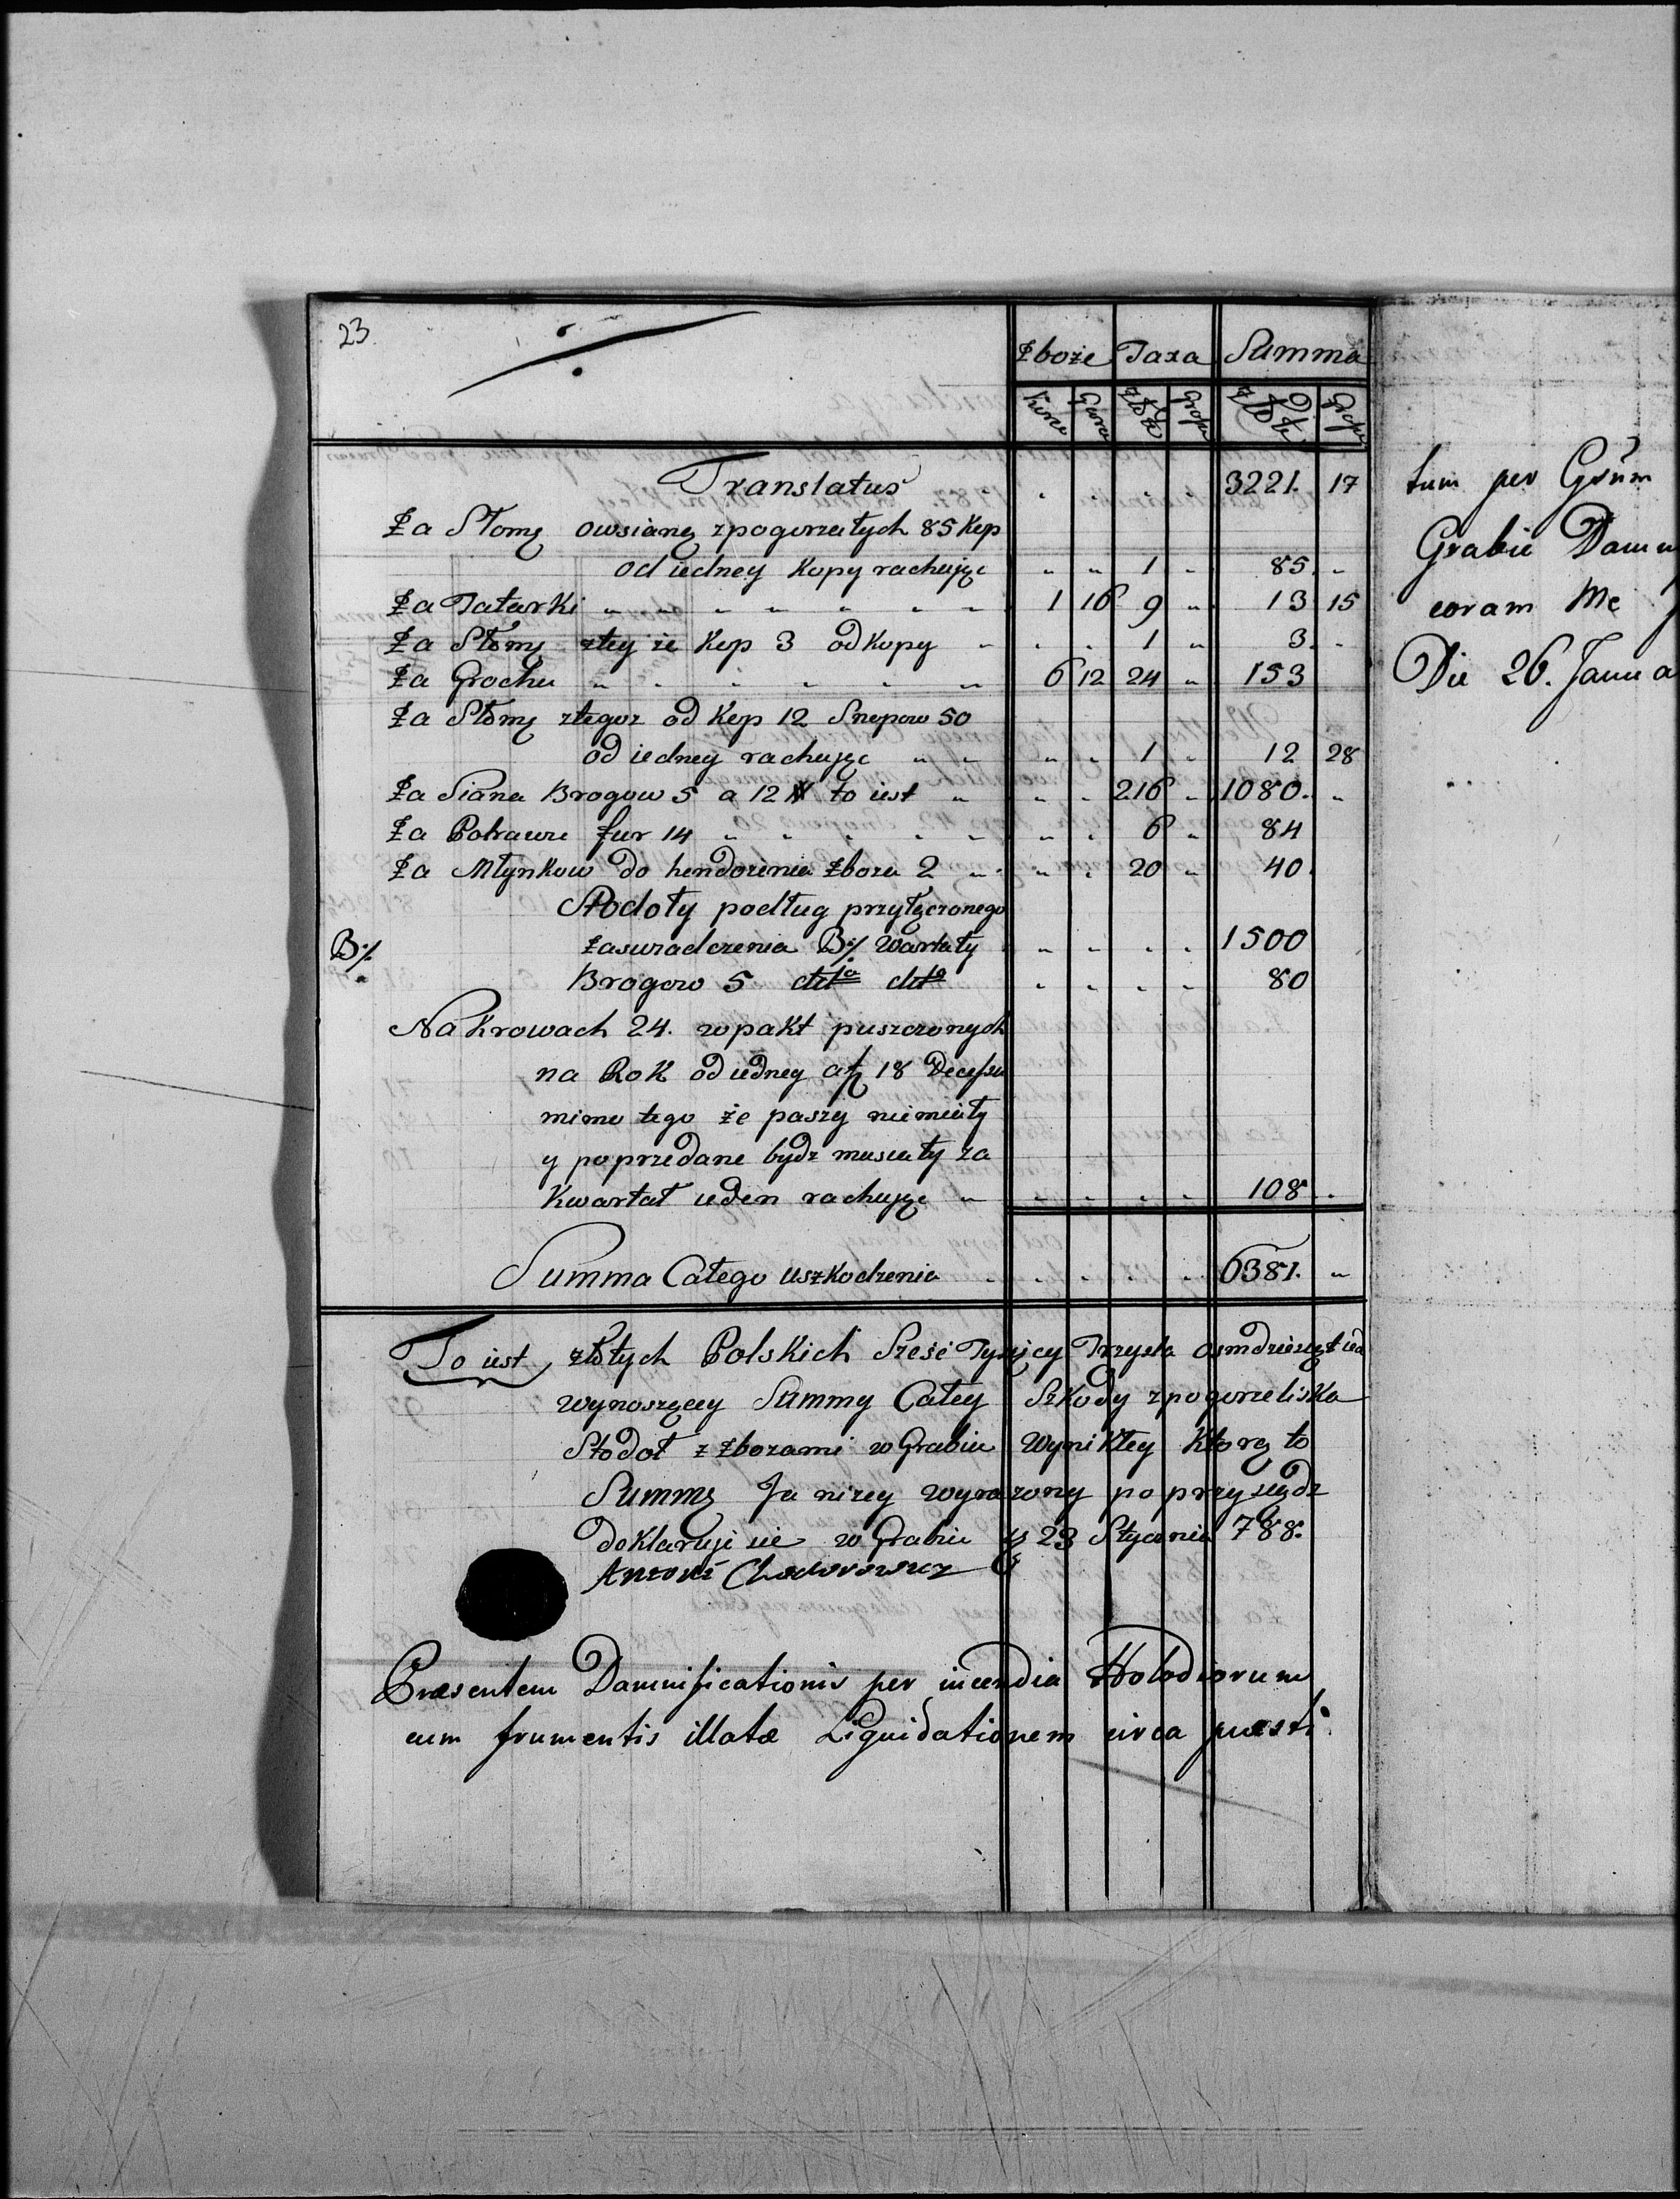 23
Zboże Taxa Summa
Korce Garce złote Grosze złote Grosze
Translatus 3221. 17
Za Słomę owsianą z pogorzałych 85 Kop
od iedney Kopy rachuięc " " 1 " 85 "
Za Tatarki " " " " " " " 1 16 9 " 13 15
Za Słomę ztey ze Kop 3 od kopy " . . 1 " 3 .
Za Grochu " " " " " " 6 12 24 " 153
Za Słomę ztegoz od Kop 12 Snopow 50
od iedney rachuięc " " " " 1 " 12 28
Za Siana Brogow 5 a 12 to iest " " . 216 " 1080. "
Za Potrawu fur 14 " " " " " " . 6 " 84
Za Młynkow do hendozenia zboza 2 " " . 20 " 40.
Stodoły podług przyłączonego
B:/. zaswiadczenia B:/. wartały " " . . 1500
Brogow 5 detto detto . . . . 80
Na Krowach 24. w pakt puszczonych
na Rok od iedney a 18 Decessu
mimo tego że paszy niemiały
y poprzedane bydz musiały za
Kwartał ieden rachuięc " " . . . 108 .
Summa Całego uszkodzenia . . . . 6381. "
To iest złotych Polskich Sześć Tysięcy Trzysta osmdziesiąt ied
wynoszący Summy Całey Szkody z pogorzeliska
Stodoł z zbozami w Grabiu wynikłey Ktorą to
Summę Ja nizey wyrazony poprzysiądz
deklaruje sie w Grabiu 23 Stycznia 788.
Antoni Chodorowicz
Præsentem Damnificationis per incendia Stodolorum
cum frumentis illatæ Liquidationem circa præsti
tum per
Grabie Damn
coram Me
Die 26. Janua